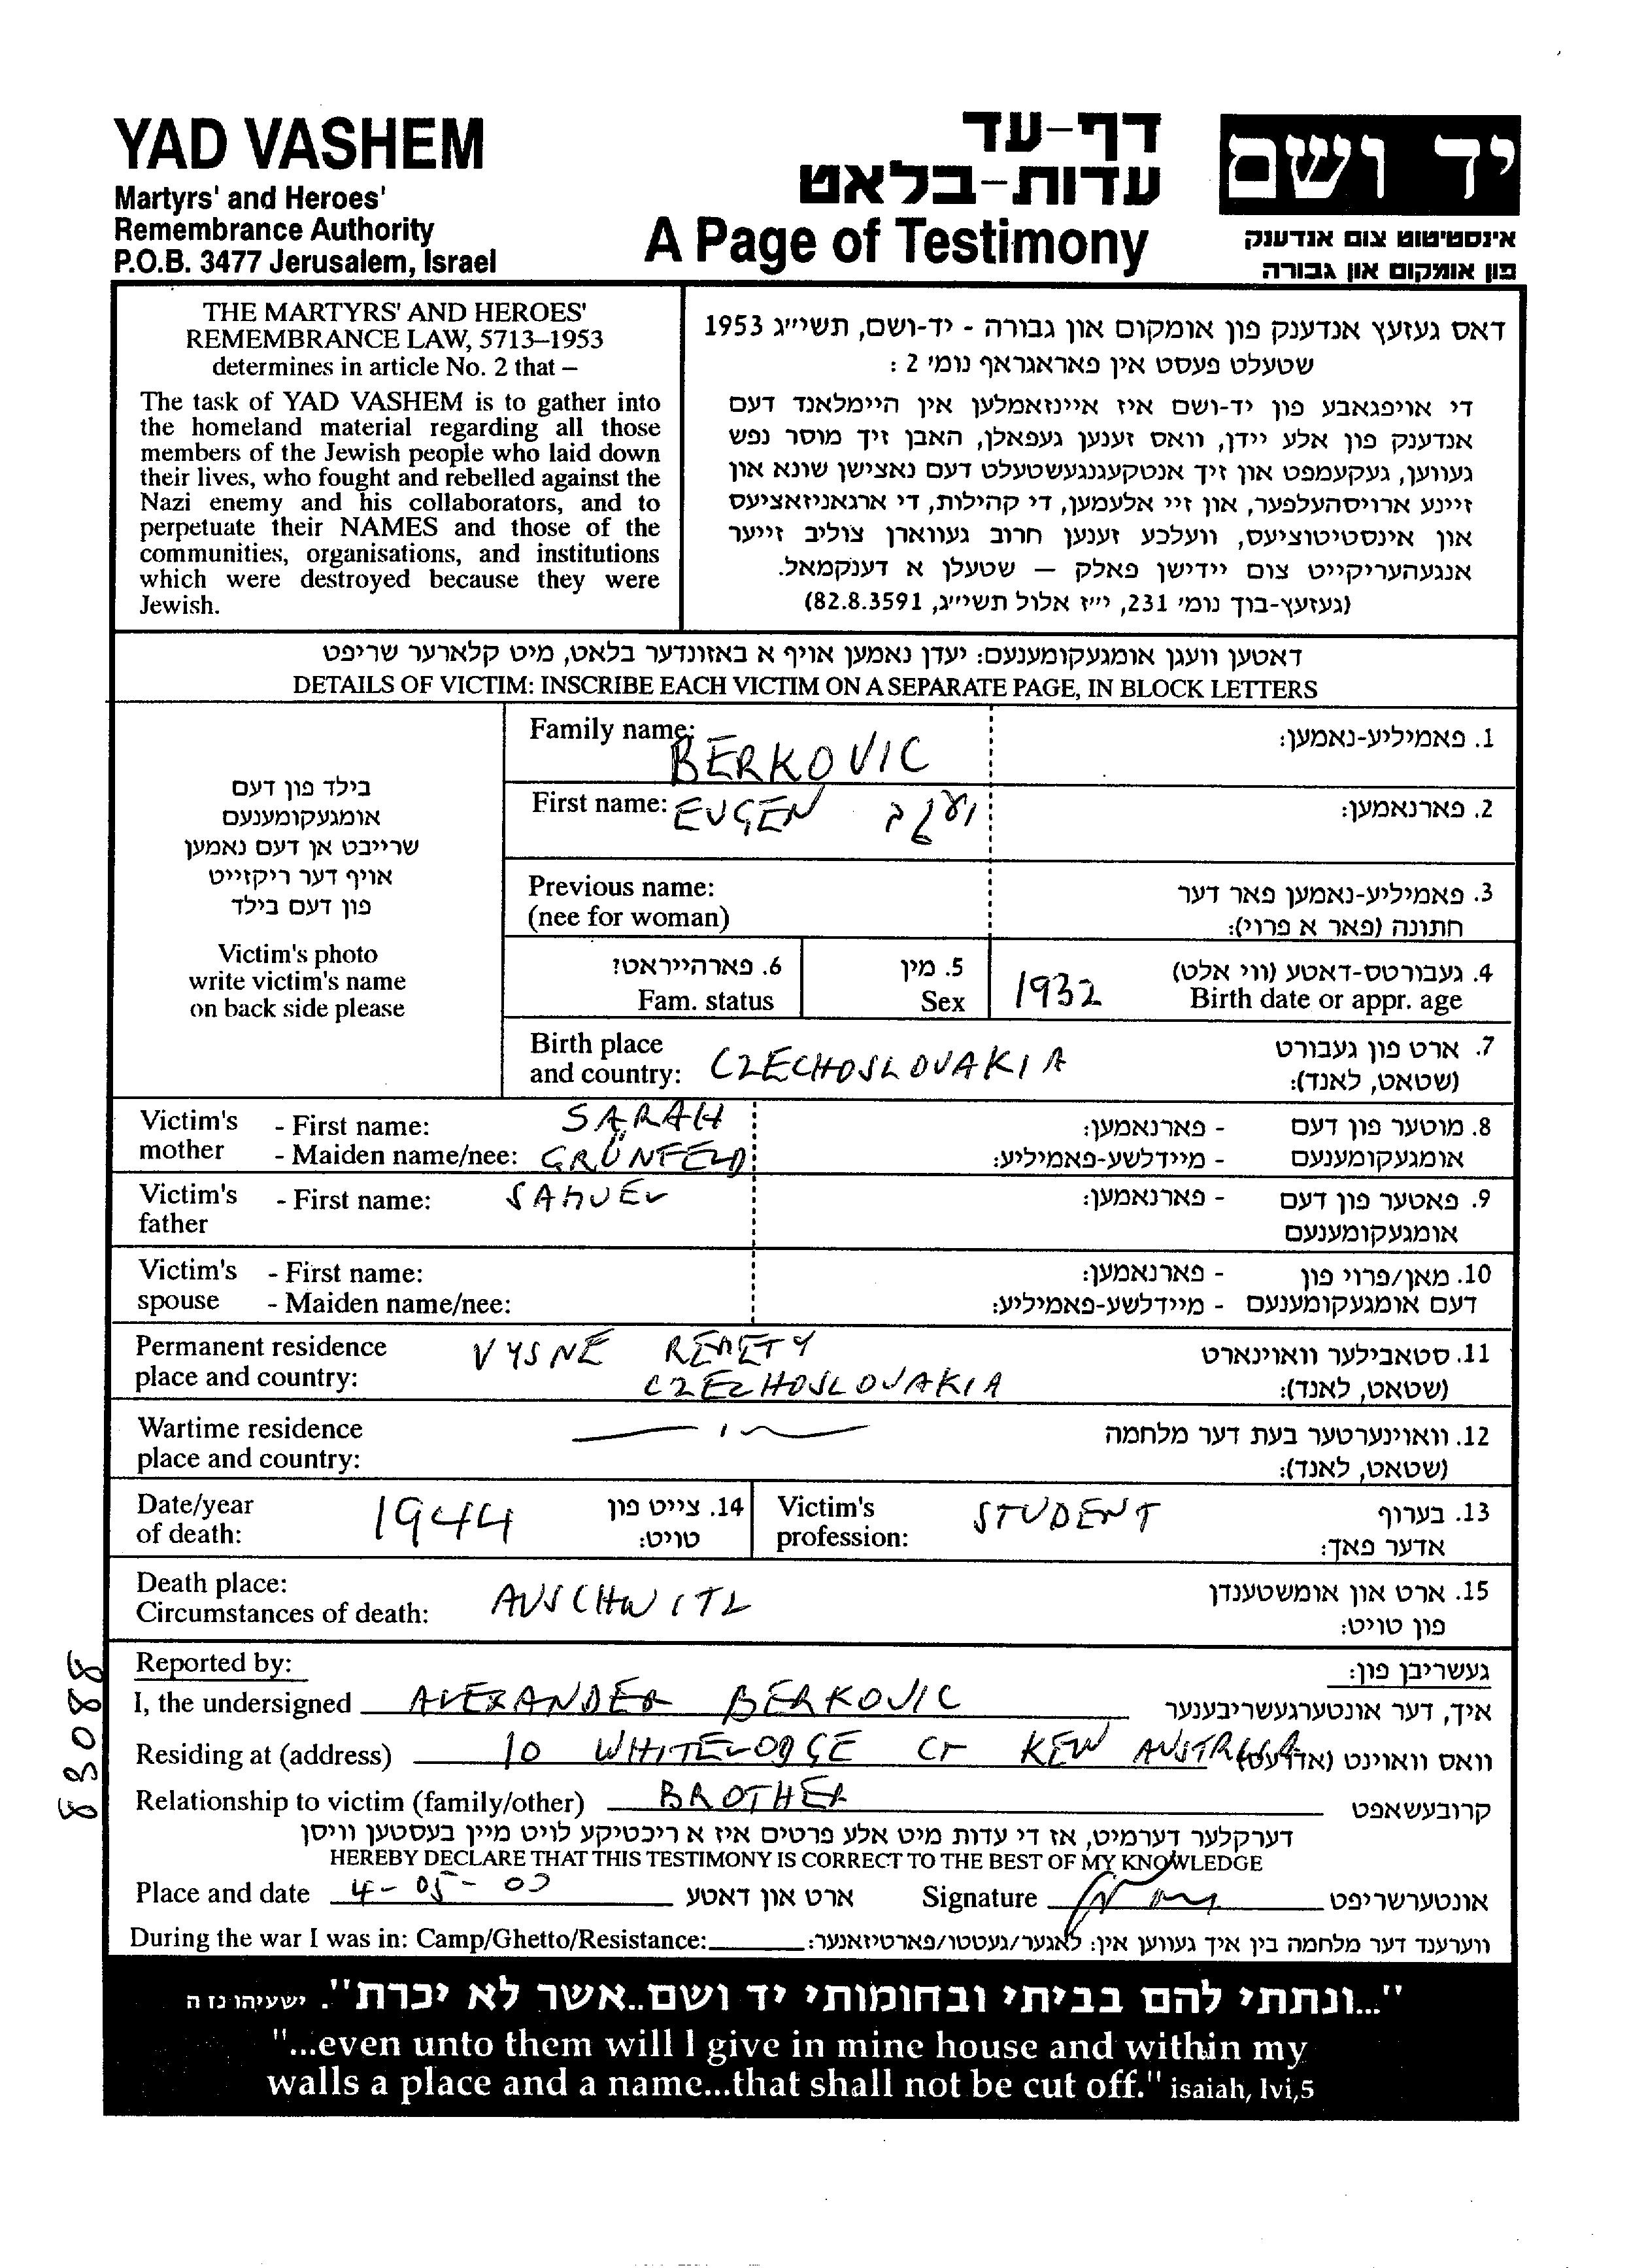 YAD VASHEM
Martyrs' and Heroes'
Remembrance Authority
P.O.B. 3477 Jerusalem, Israel
דף-עד
עדות-בלאט
A Page of Testimony
יד ושם
אינסטיטוט צום אנדענק
פון אומקום און גבורה
THE MARTYRS' AND HEROES'
REMEMBRANCE LAW, 5713–1953
determines in article No. 2 that –
The task of YAD VASHEM is to gather into
the homeland material regarding all those
members of the Jewish people who laid down
their lives, who fought and rebelled against the
Nazi enemy and his collaborators, and to
perpetuate their NAMES and those of the
communities, organisations, and institutions
which were destroyed because they were
Jewish.
דאס געזעץ אנדענק פון אומקום און גבורה - יד-ושם, תשי״ג 1953
שטעלט פעסט אין פאראגראף נומ׳ 2 :
די אויפגאבע פון יד-ושם איז איינזאמלען אין היימלאנד דעם
אנדענק פון אלע יידן, וואס זענען געפאלן, האבן זיך מוסר נפש
געווען, געקעמפט און זיך אנטקעגנגעשטעלט דעם נאצישן שונא און
זיינע ארויסהעלפער, און זיי אלעמען, די קהילות, די ארגאניזאציעס
און אינסטיטוציעס, וועלכע זענען חרוב געווארן צוליב זייער
אנגעהעריקייט צום יידישן פאלק – שטעלן א דענקמאל.
(געזעץ-בוך נומ׳ 231, י״ז אלול תשי״ג, 82.8.3591)
דאטען וועגן אומגעקומענעם: יעדן נאמען אויף א באזונדער בלאט, מיט קלארער שריפט
DETAILS OF VICTIM: INSCRIBE EACH VICTIM ON A SEPARATE PAGE, IN BLOCK LETTERS
בילד פון דעם
אומגעקומענעם
שרייבט אן דעם נאמען
אויף דער ריקזייט
פון דעם בילד
Victim's photo
write victim's name
on back side please
Family name: BERKOVIC 1. פאמיליע-נאמען:
First name: EUGEN 2. פארנאמען:
Previous name: 3. פאמיליע-נאמען פאר דער
(nee for woman) חתונה (פאר א פרוי):
6. פארהייראט? 5. מין 4. געבורטס-דאטע (ווי אלט)
Fam. status Sex 1932 Birth date or appr. age
Birth place 7. ארט פון געבורט
and country: CZECHOSLOVAKIA (שטאט, לאנד):
Victim's - First name: SARAH - פארנאמען: 8. מוטער פון דעם
mother - Maiden name/nee: GRÜNFELD - מיידלשע-פאמיליע: אומגעקומענעם
Victim's - First name: SAMUEL - פארנאמען: 9. פאטער פון דעם
father אומגעקומענעם
Victim's - First name: - פארנאמען: 10. מאן/פרוי פון
spouse - Maiden name/nee: - מיידלשע-פאמיליע: דעם אומגעקומענעם
Permanent residence VYSNE REMETY 11. סטאבילער וואוינארט
place and country: CZECHOSLOVAKIA (שטאט, לאנד):
Wartime residence 12. וואוינערטער בעת דער מלחמה
place and country: — " — (שטאט, לאנד):
Date/year 1944 14. צייט פון Victim's STUDENT 13. בערוף
of death: טויט: profession: אדער פאך:
Death place: 15. ארט און אומשטענדן
Circumstances of death: AUSCHWITZ פון טויט:
Reported by: געשריבן פון:
I, the undersigned ALEXANDER BERKOVIC איך, דער אונטערגעשריבענער
Residing at (address) 10 WHITELODGE CT KEW AUSTRALIA וואס וואוינט (אדרעס)
Relationship to victim (family/other) BROTHER קרובעשאפט
דערקלער דערמיט, אז די עדות מיט אלע פרטים איז א ריכטיקע לויט מיין בעסטען וויסן
HEREBY DECLARE THAT THIS TESTIMONY IS CORRECT TO THE BEST OF MY KNOWLEDGE
Place and date 4-05- ארט און דאטע Signature אונטערשריפט
During the war I was in: Camp/Ghetto/Resistance: ווערענד דער מלחמה בין איך געווען אין: לאגער/געטטו/פארטיזאנער:
"...ונתתי להם בביתי ובחומותי יד ושם..אשר לא יכרת". ישעיהו נז ה
"...even unto them will I give in mine house and within my
walls a place and a name...that shall not be cut off." isaiah, lvi,5